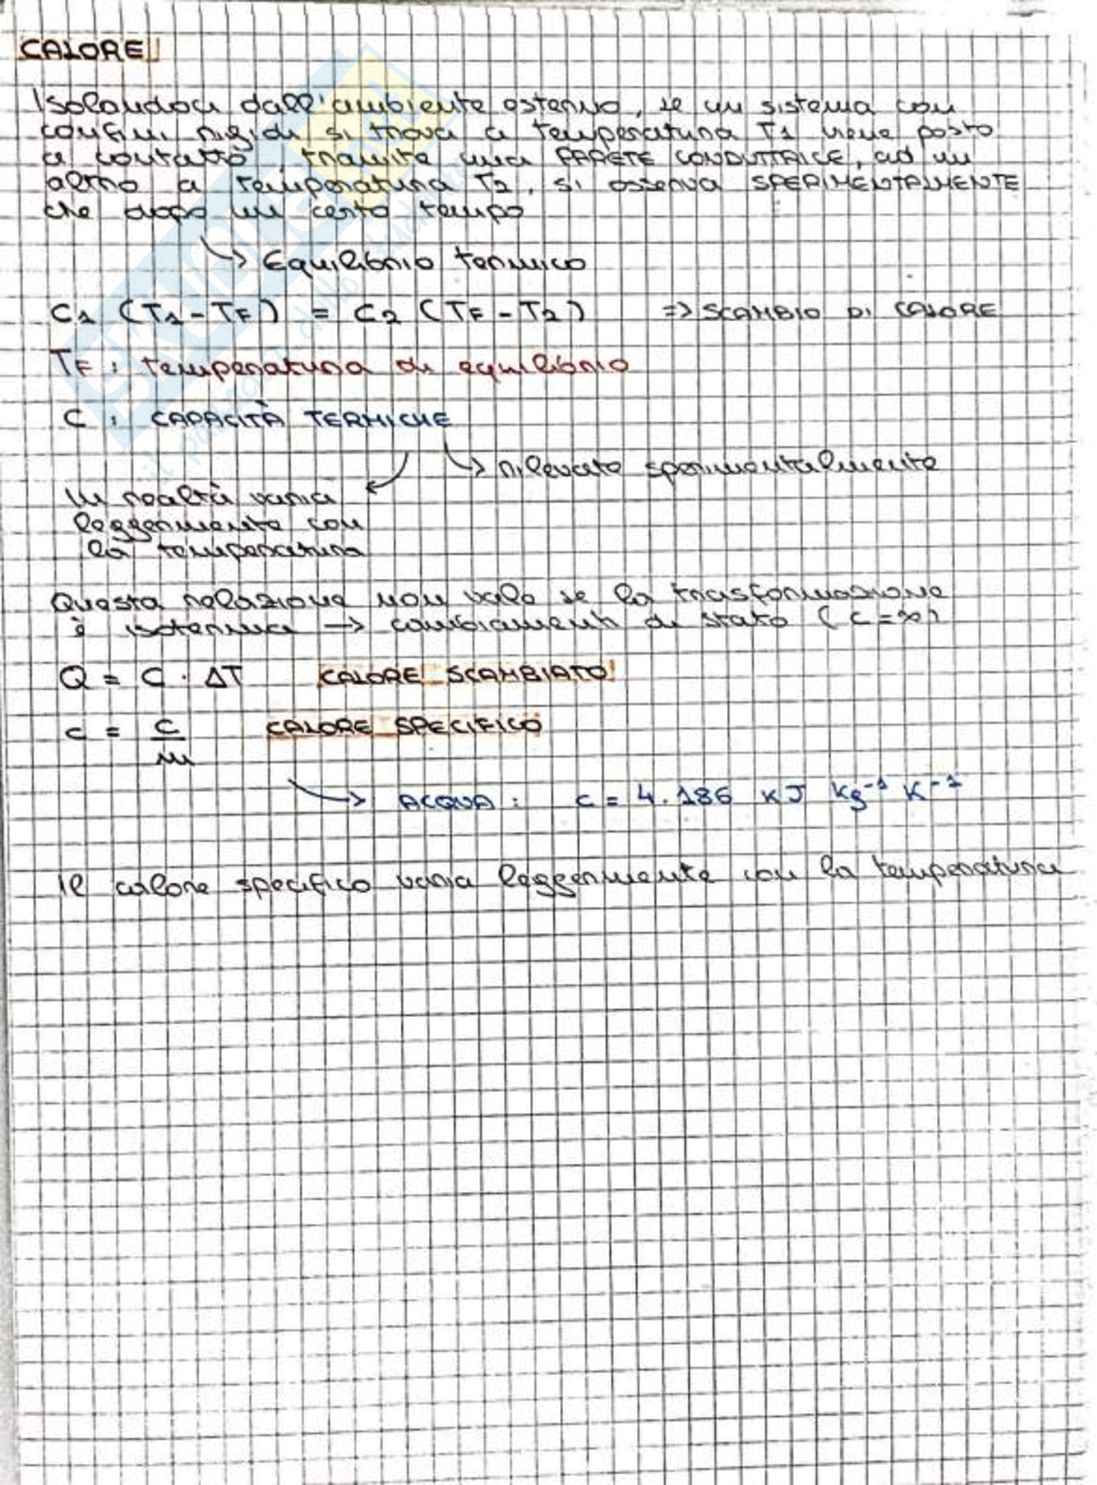 CALORE
Isolandoci dall'ambiente esterno, se un sistema con
confini rigidi si trova a temperatura T1 viene posto
a contatto, tramite una PARETE CONDUTTRICE, ad un
altro a temperatura T2, si osserva SPERIMENTALMENTE
che dopo un certo tempo
↳ Equilibrio termico
C1 (T1 - TF) = C2 (TF - T2) => SCAMBIO DI CALORE
TF: temperatura di equilibrio
C: CAPACITÀ TERMICHE
↳ rilevate sperimentalmente
in realtà varia
leggermente con
la temperatura
Questa relazione non vale se la trasformazione
è isoterma → cambiamenti di stato (C=∞)
Q = C · ΔT CALORE SCAMBIATO
c = C/m CALORE SPECIFICO
↳ ACQUA: c = 4.186 KJ Kg⁻¹ K⁻¹
Il calore specifico varia leggermente con la temperatura